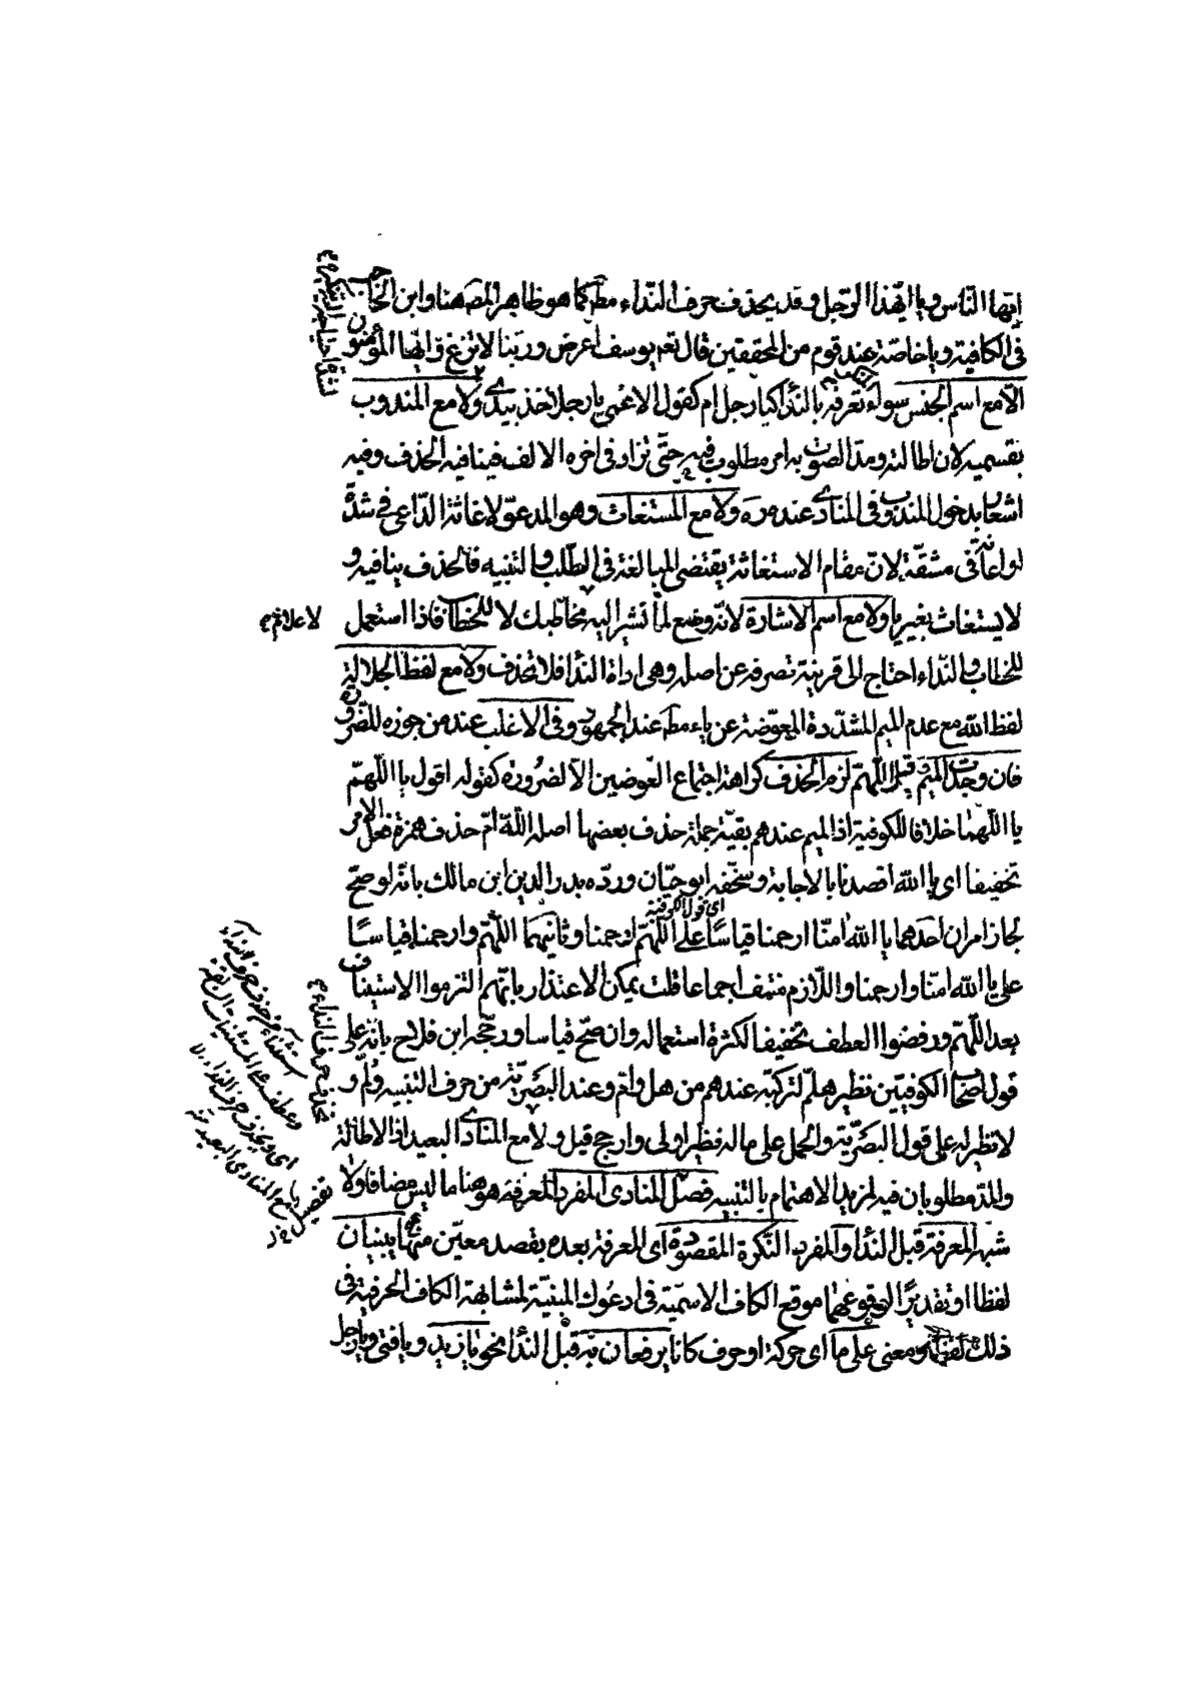 ايها الناس ويا ايهذا الرجل وقد يحذف حرف النداء مطـ كما هو ظاهر المصـ هنا وابن الحاجب
في الكافية ويا خاصة عند قوم من المحققين قال تعـ يوسف اعرض وربنا لا تزغ وايها المؤمنون
الا مع اسم الجنس سواء تعرفه بالنداء كيا رجل ام كقول الاعمى يا رجلا خذ بيدي ولا مع المندوب
بقسميه لان اطالته ومد الصوت به امر مطلوب فيه حتى تزاد في اخره الالف فينافيه الحذف وفيه
اشعار بدخول المندوب في المنادى عنده ره ولا مع المستغاث وهو المدعو لاغاثة الداعي في شدة
لواعانة في مشقة لان مقام الاستغاثة يقتضي المبالغة في الطلب والتنبيه فالحذف ينافيه و
لا يستغاث بغير يا ولا مع اسم الاشارة لانه وضع لما تشير اليه مخاطبك لا للخطاب فاذا استعمل
لا علامة م
للخطاب والنداء احتاج الى قرينة تصرفه عن اصله وهى اداة النداء فلا تحذف ولا مع لفظ الجلالة
لفظ الله مع عدم الميم المشددة المعوضة عن ياء مطـ عند الجمهور وفى الاغلب عند من جوزه للضرورة
فان وجدت الميم قبل اللهم لزم الحذف كراهة اجتماع العوضين الا لضرورة كقوله اقول يا اللهم
يا اللهما خلافا للكوفية اذ الميم عندهم بقية جملة حذف بعضها اصله الله ام حذف همزة فعل الامر
تخفيفا اي يا الله اقصدنا بالاجابة وسخفه ابو حيان ورده بدر الدين ابن مالك بانه لو صح
اي قول الكوفية
لجاز امران احدهما يا الله امنا ارحمنا قياسا على اللهم ارحمنا وثانيهما اللهم وارحمنا قياسا
على يا الله امنا وارحمنا واللازم منتف اجماعا قلت يمكن الاعتذار بانهم التزموا الاستيناف
بعد اللهم ورفضوا العطف تخفيفا لكثرة استعماله وان صح قياسا ورجحه ابن فلاح بانه على
قول اصحابنا الكوفيين نظير هلم لتركبه عندهم من هل وام وعند البصرية من حرف التنبيه ولم و
لا نظير له على قول البصرية والحمل على ما له نظير اولى وارجح قيل ولا مع المنادى البعيد اذ الاطالة
والمد مطلوبان فيه لمزيد الاهتمام بالتنبيه فصل المنادى المفرد المعرفة هو هنا ما ليس مضافا ولا
شبهه المعرفة قبل النداء والمفرد النكرة المقصودة اى المعرفة بعده بقصد معين منها يبنيان
لفظا او تقديرا لوقوعهما موقع الكاف الاسمية فى ادعوك المبنية لمشابهة الكاف الحرفية فى
ذلك لفظا ومعنى على ما اى حركة او حرف كانا يرفعان به قبل النداء نحو يا زيد ويا فتى ويا رجل